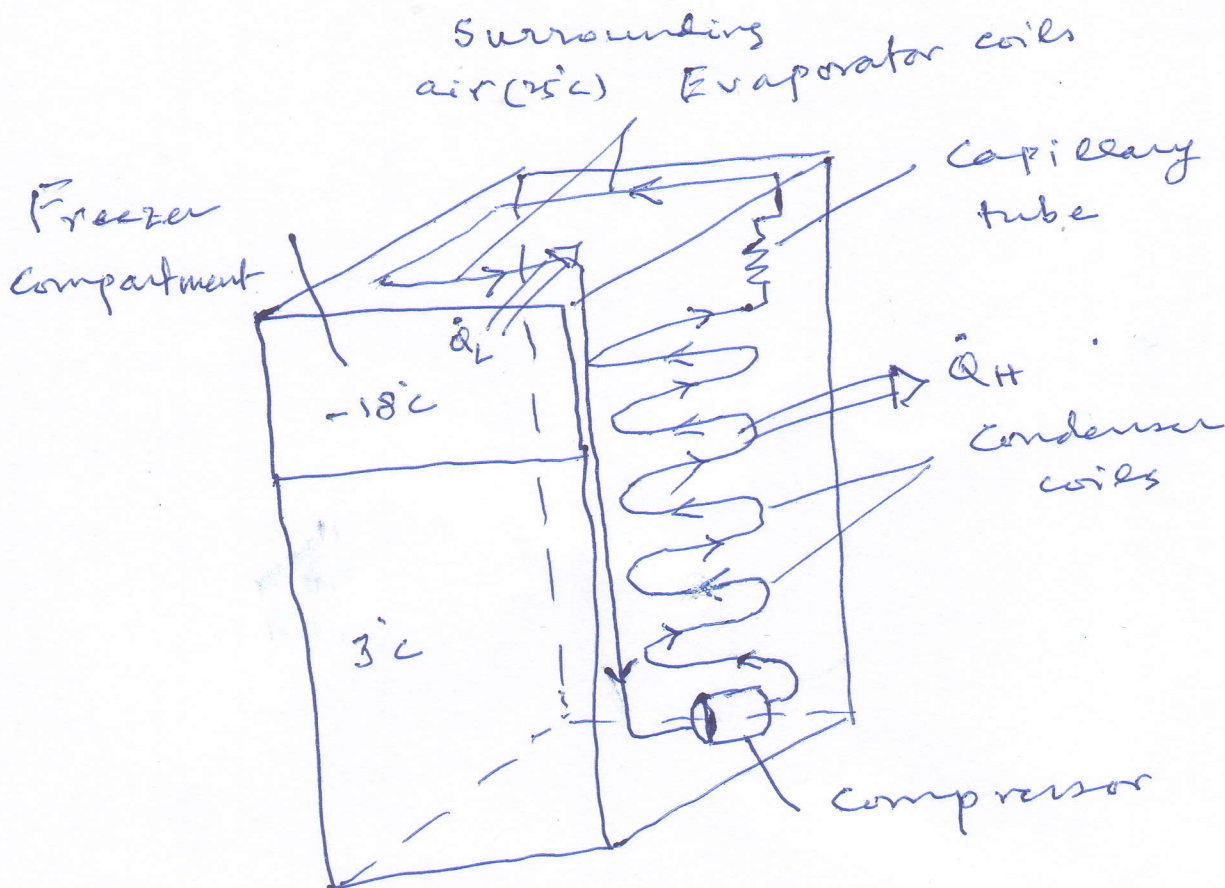 Surrounding
air (25°C)
Evaporator coils
Capillary
tube
Freezer
compartment
Q̇L
-18°C
Q̇H
Condenser
coils
3°C
Compressor